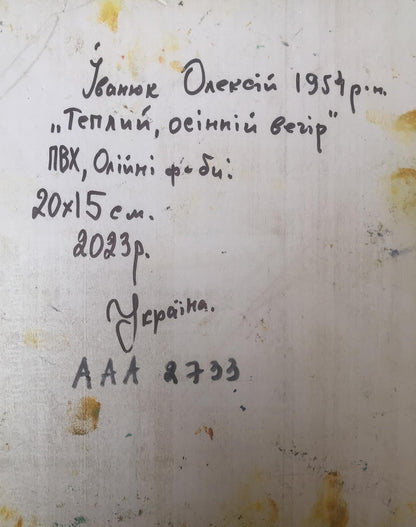 Іванюк Олексій 1954 р.н.
„Теплий, осінній вечір"
ПВХ, Олійні ф-би.
20х15 см.
2023р.
Україна.
ААА 2733